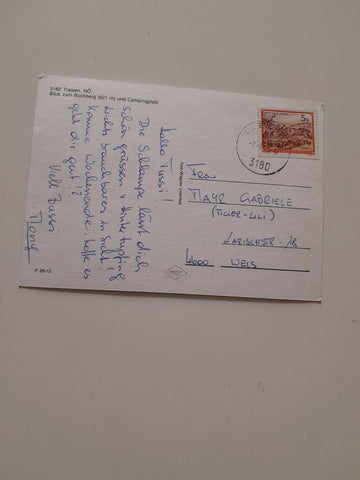 3180 Traisen, NÖ.
Blick zum Buchberg (621 m) und Campingplatz
Hallo Tussi!
Die Schlampe lässt dich
schön grüssen v
nichts brauchbares in Sicht!
Komme Wochenende, hoffe es
geht dir gut!?
Viele Bussi
F 28-12
5
3180
Frau
MAYR GABRIELE
(TIGER-LILI)
18
4600 WELS